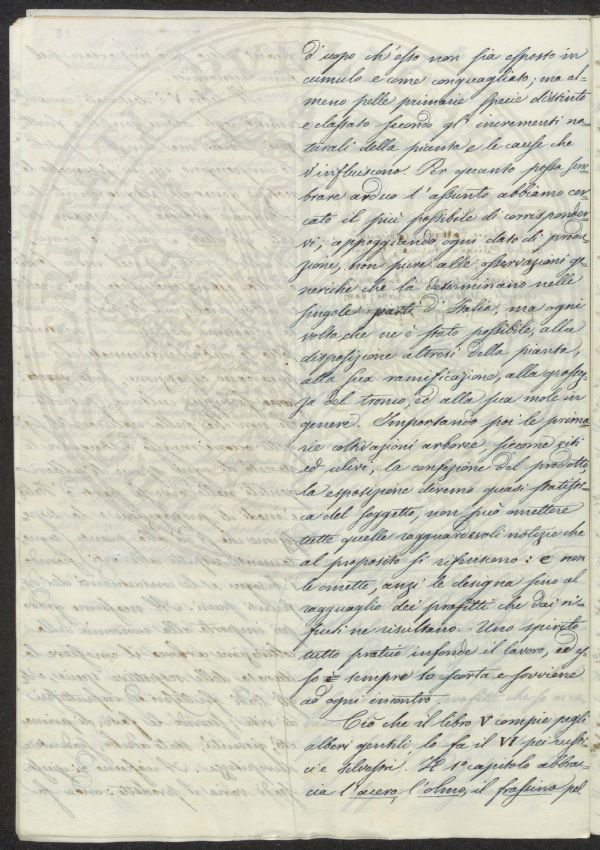 d'uopo ch'esso non sia esposto in
cumulo e come conquagliato; ma al-
meno pelle primarie specie distinto
e classato secondo gl'incrementi na-
turali della pianta e le cause che
v'influiscono. Per quanto possa sem
brare arduo l'assunto abbiamo cer
cato il più possibile di corrisponder
vi, appoggiando ogni dato di produ
zione, non pure alle osservazioni ge
neriche che la determinano nelle
singole parti d'Italia, ma ogni
volta che ne è stato possibile, alla
disposizione altresì della pianta,
alla sua ramificazione, alla grossez
za del tronco, ed alla sua mole in
genere. Importando poi le prima
rie coltivazioni arboree siccome viti
ed ulivi, la confezione del prodotto,
la esposizione diremo quasi statisti
ca del soggetto, non può omettere
tutte quelle ragguardevoli notizie che
al proposito si riferiscono: e non
le omette, anzi le designa sino al
ragguaglio dei profitti che dai ri-
fiuti ne risultano. Uno spirito
tutto pratico infonde il lavoro, ed es
so è sempre la scorta e sovviene
ad ogni incontro
Ciò che il libro V compie pegli
alberi gentili, lo fa il VI pei rusti
ci e silvestri. Il 1º capitolo abbrac
cia l'acero, l'olmo, il frassino pel